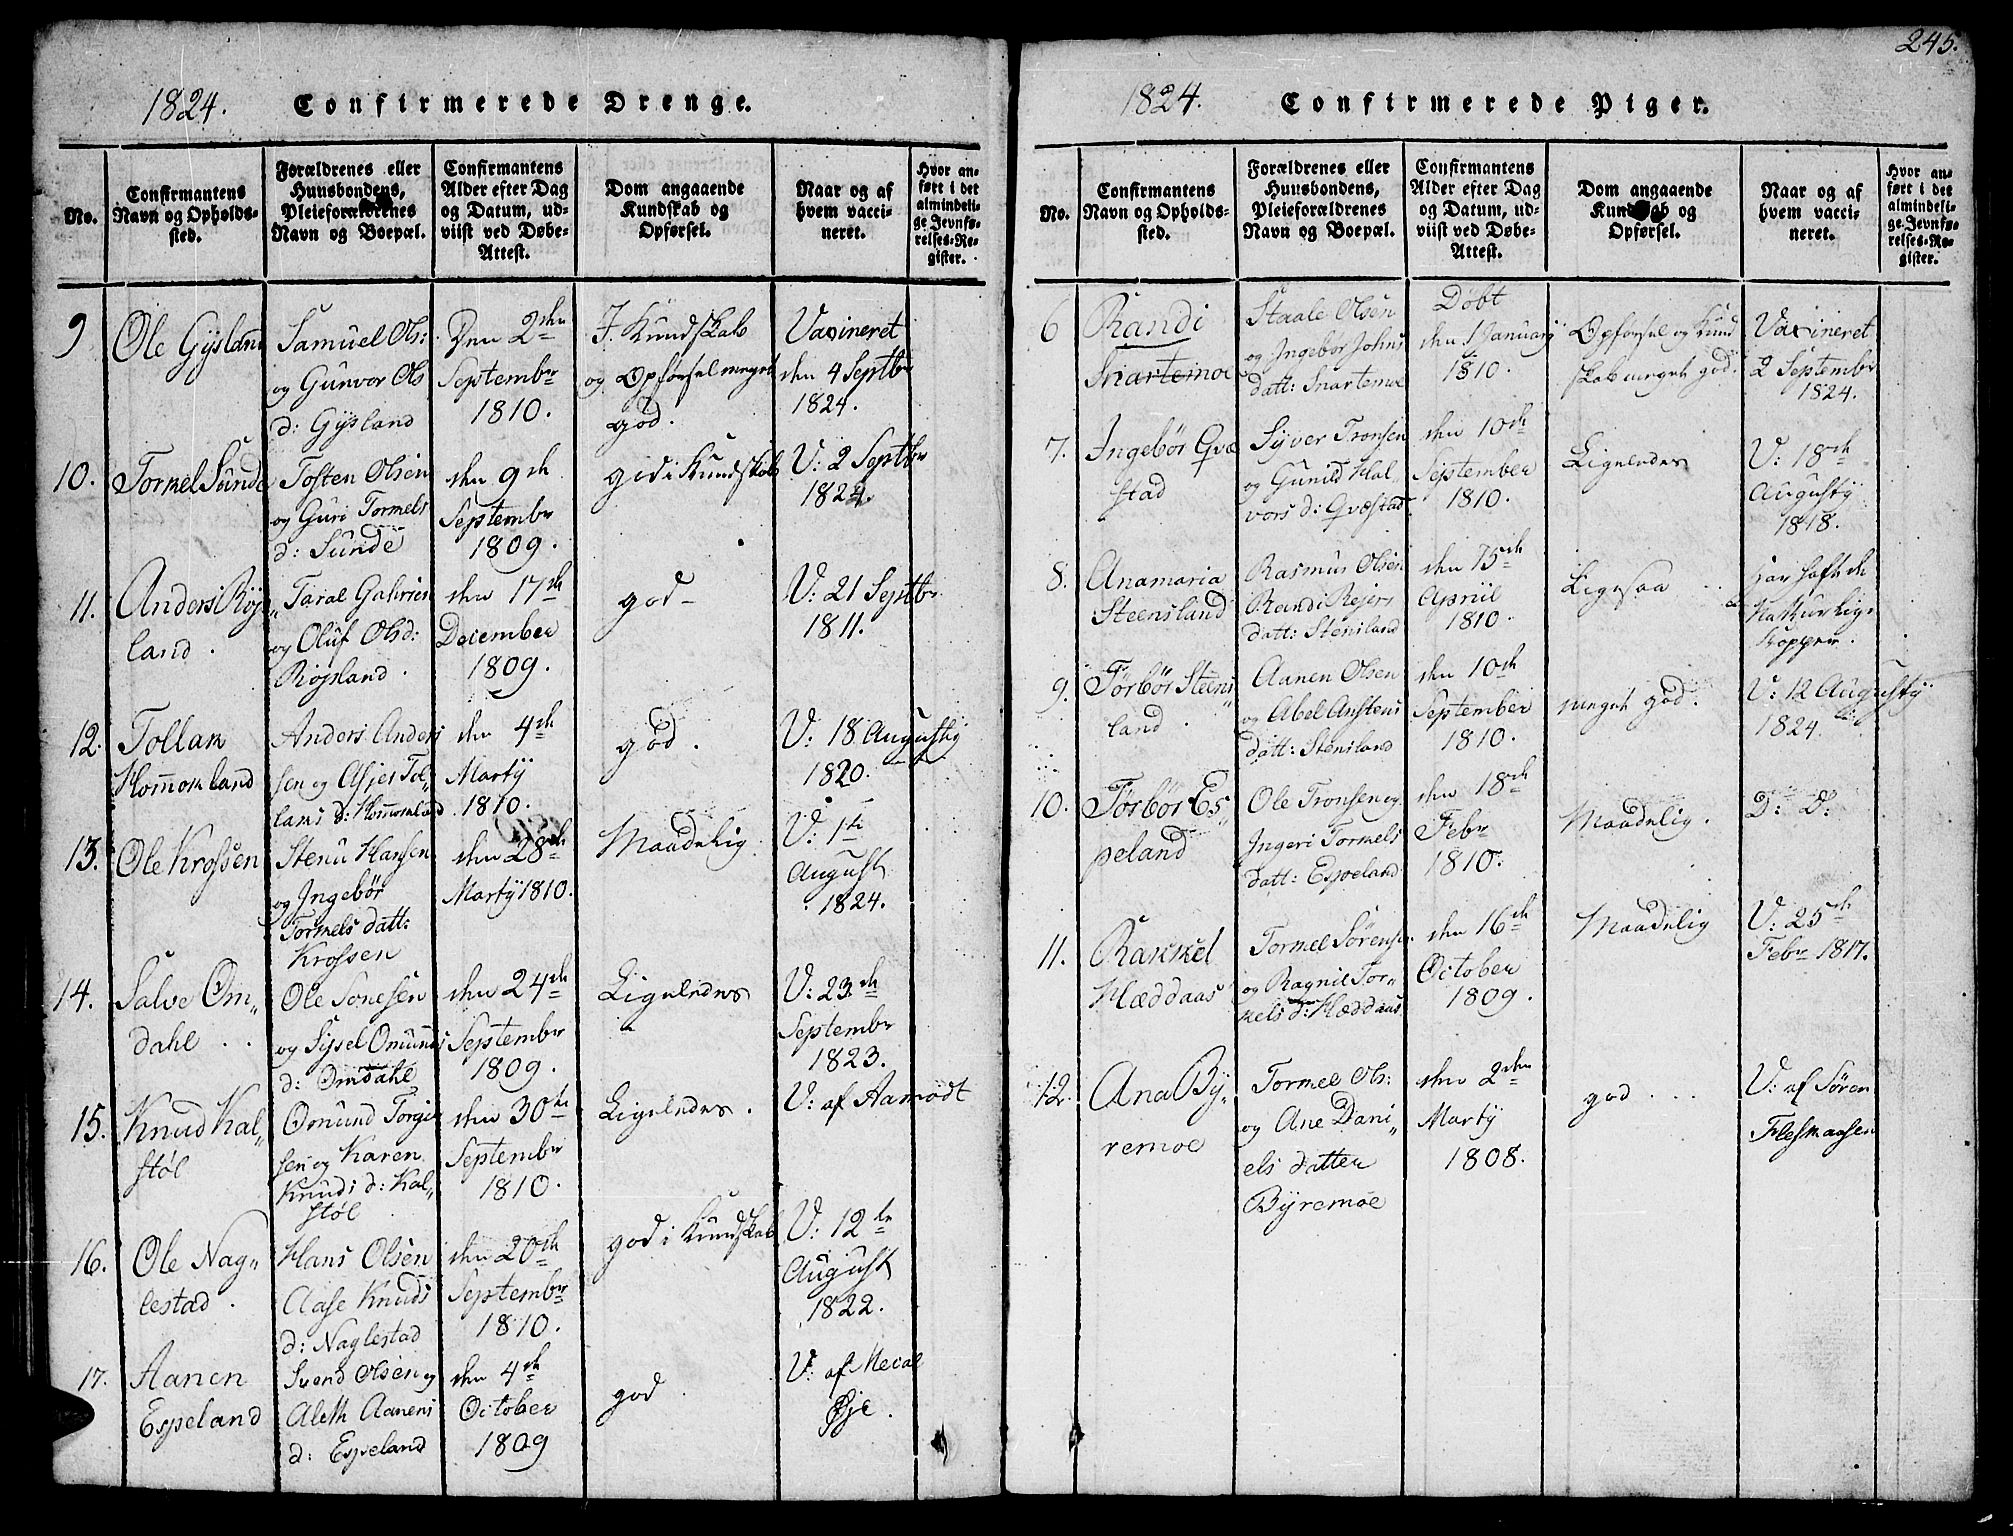 245.
1824. Confirmerede Drenge.
No.
Confirmantens
Navn og Opholds-
sted.
Forældrenes eller
Huusbondens,
Pleieforældrenes
Navn og Boepæl.
Confirmantens
Alder efter Dag
og Datum, ud-
viist ved Døbe-
Attest.
Dom angaaende
Kundskab og
Opførsel.
Naar og af
hvem vacci-
neret.
Hvor an-
ført i det
almindeli-
ge Jevnfø-
relses-Re-
gister.
9
Ole Gysland
Samuel Ols:
og Gunvor Ols
d: Gysland
Den 2den
Septembr
1810.
I Kundskab
og Opførsel meget
god.
Vaxineret
den 4 Septbr
1824.
10.
Tormel Sunde
Tosten Olsen
og Guri Tormels
d: Sunde
den 9de
Septembr
1809.
god i Kundskab
V: 2 Septbr
1824.
11.
Anders Røjs
land.
Taral Gahrsen
og Oluf Olsd:
Røjsland.
den 17de
December
1809.
god
V: 21 Septbr
1811.
12.
Tollak
Hommomland
Anders Anders
sen og Asjer Tol„
laks d: Hommomland
den 4de
Martÿ
1810.
god.
V: 18 Augustÿ
1820.
13.
Ole Krossen
Stenu Hansen
og Ingebør
Tormels datt:
Krossen
den 28de
Martÿ 1810.
Maadelig
V: 1te
August
1824.
14.
Salve Om„
dahl
Ole Sonesen
og Sissel Omunds
d: Omdahl
den 24de
Septembr
1809.
Ligeledes
V: 23de
Septembr
1823.
15.
Knud Kal„
støl
Omund Torgir
sen og Karen
Knuds d: Kal„
støl
den 30te
Septembr
1810.
Ligeledes.
V: af Aamodt
16.
Ole Nag„
lestad.
Hans Olsen
Aase Knuds
d: Naglestad
den 20de
Septembr
1810.
god i Kundskab
V: 12te
August
1822.
17.
Aanen
Espeland
Svend Olsen og
Aleth Aanens
d: Espeland
den 4de
October
1809
god
V: af Necal
Øje.
1824. Confirmerede Piger.
No.
Confirmantens
Navn og Opholds-
sted.
Forældrenes eller
Huusbondens,
Pleieforældrenes
Navn og Boepæl.
Confirmantens
Alder efter Dag
og Datum, ud-
viist ved Døbe-
Attest.
Dom angaaende
Kundskab og
Opførsel.
Naar og af
hvem vacci-
neret.
Hvor an-
ført i det
almindeli-
ge Jevnfø-
relses-Re-
gister.
6
Randi
Snartemoe
Staale Olsen
og Ingebor Johns
datt: Snartemoe
Døbt
den 1 Januarÿ
1810.
Opførsel og Kund
skab meget god.
Vaxineret
2 Septembr
1824.
7.
Ingebør Qvæ
stad
Syver Tronsen
og Gunild Hal
vors d: Qvæstad
den 10de
September
1810.
Ligeledes
V: 18de
Augustÿ
1818.
8.
Anamaria
Steensland
Rasmus Olsen
Randi Rejers
datt: Stensland
den 15de
Apriil
1810.
Ligesaa
har hafte de
Naturlige
Kopper.
9.
Tørbør Steens„
land.
Aanen Olsen
og Abel Anstens
datt: Stensland
den 10de
September
1810.
meget god.
V: 12 Augustÿ
1824.
10.
Tørbør Es„
peland
Ole Tronsen og
Ingeri Tormels
datt: Espeland
den 18de
Febr
1810.
Maadelig.
D: D:
11.
Rakkel
Hæddaas
Tormel Sørensen
og Ragnil Tor„
kels d: Hæddaas
den 16de
October
1809.
Maadelig
V: 25de
Febr 1817.
12.
Ana By„
remoe
Tormel Ols:
og Ane Dani„
els datter
Byremoe
den 2den
Martÿ
1808.
god
V: af Søren
Flesmaasen